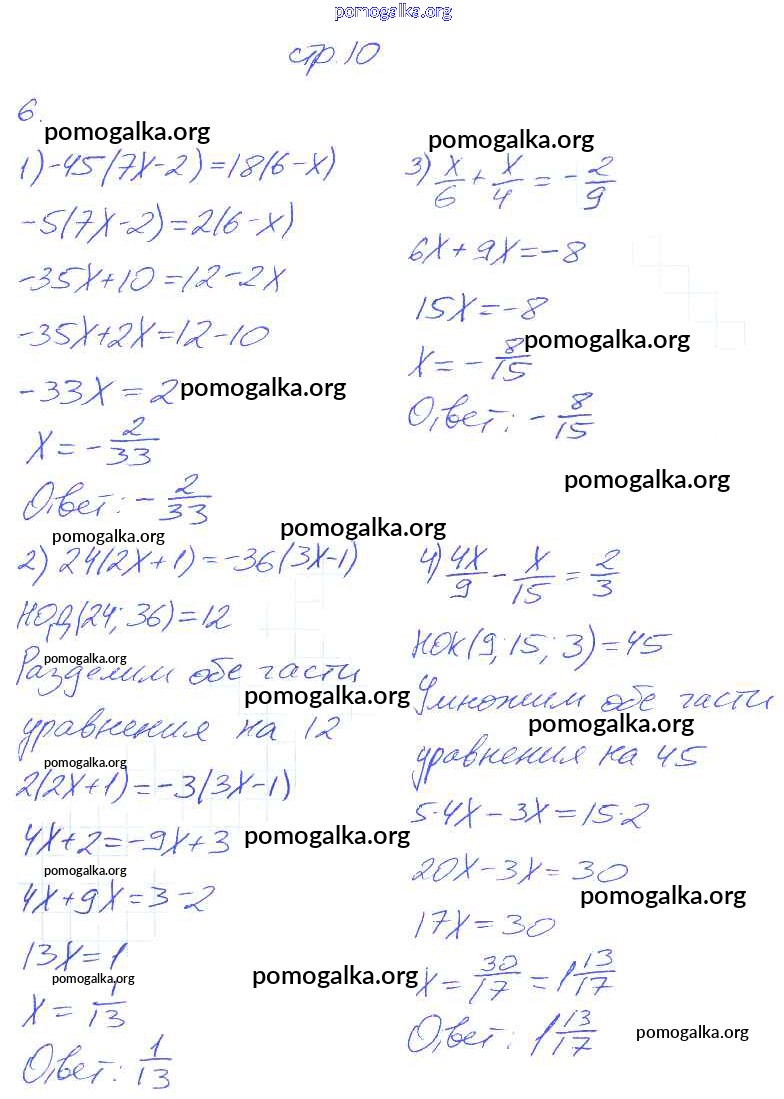 pomogalka.org
стр. 10
6.
pomogalka.org
1) -45(7x-2)=18(6-x)
-5(7x-2)=2(6-x)
-35x+10=12-2x
-35x+2x=12-10
-33x=2
pomogalka.org
x=-2/33
Ответ: -2/33
pomogalka.org
pomogalka.org
2) 24(2x+1)=-36(3x-1)
НОД(24; 36)=12
pomogalka.org
Разделим обе части
pomogalka.org
уравнения на 12
pomogalka.org
2(2x+1)=-3(3x-1)
4x+2=-9x+3
pomogalka.org
pomogalka.org
4x+9x=3-2
13x=1
pomogalka.org
pomogalka.org
x=1/13
Ответ: 1/13
pomogalka.org
3) x/6+x/4=-2/9
6x+9x=-8
15x=-8
pomogalka.org
x=-8/15
Ответ: -8/15
pomogalka.org
4) 4x/9-x/15=2/3
НОК(9; 15; 3)=45
Умножим обе части
pomogalka.org
уравнения на 45
5·4x-3x=15·2
20x-3x=30
pomogalka.org
17x=30
x=30/17=1 13/17
Ответ: 1 13/17
pomogalka.org